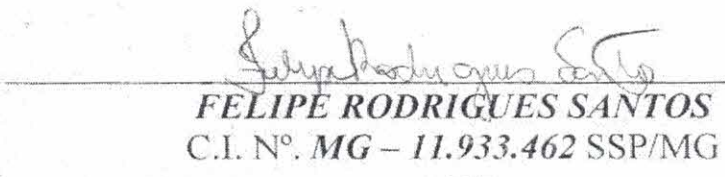 Felipe Rodrigues Santos
FELIPE RODRIGUES SANTOS
C.I. Nº. MG – 11.933.462 SSP/MG